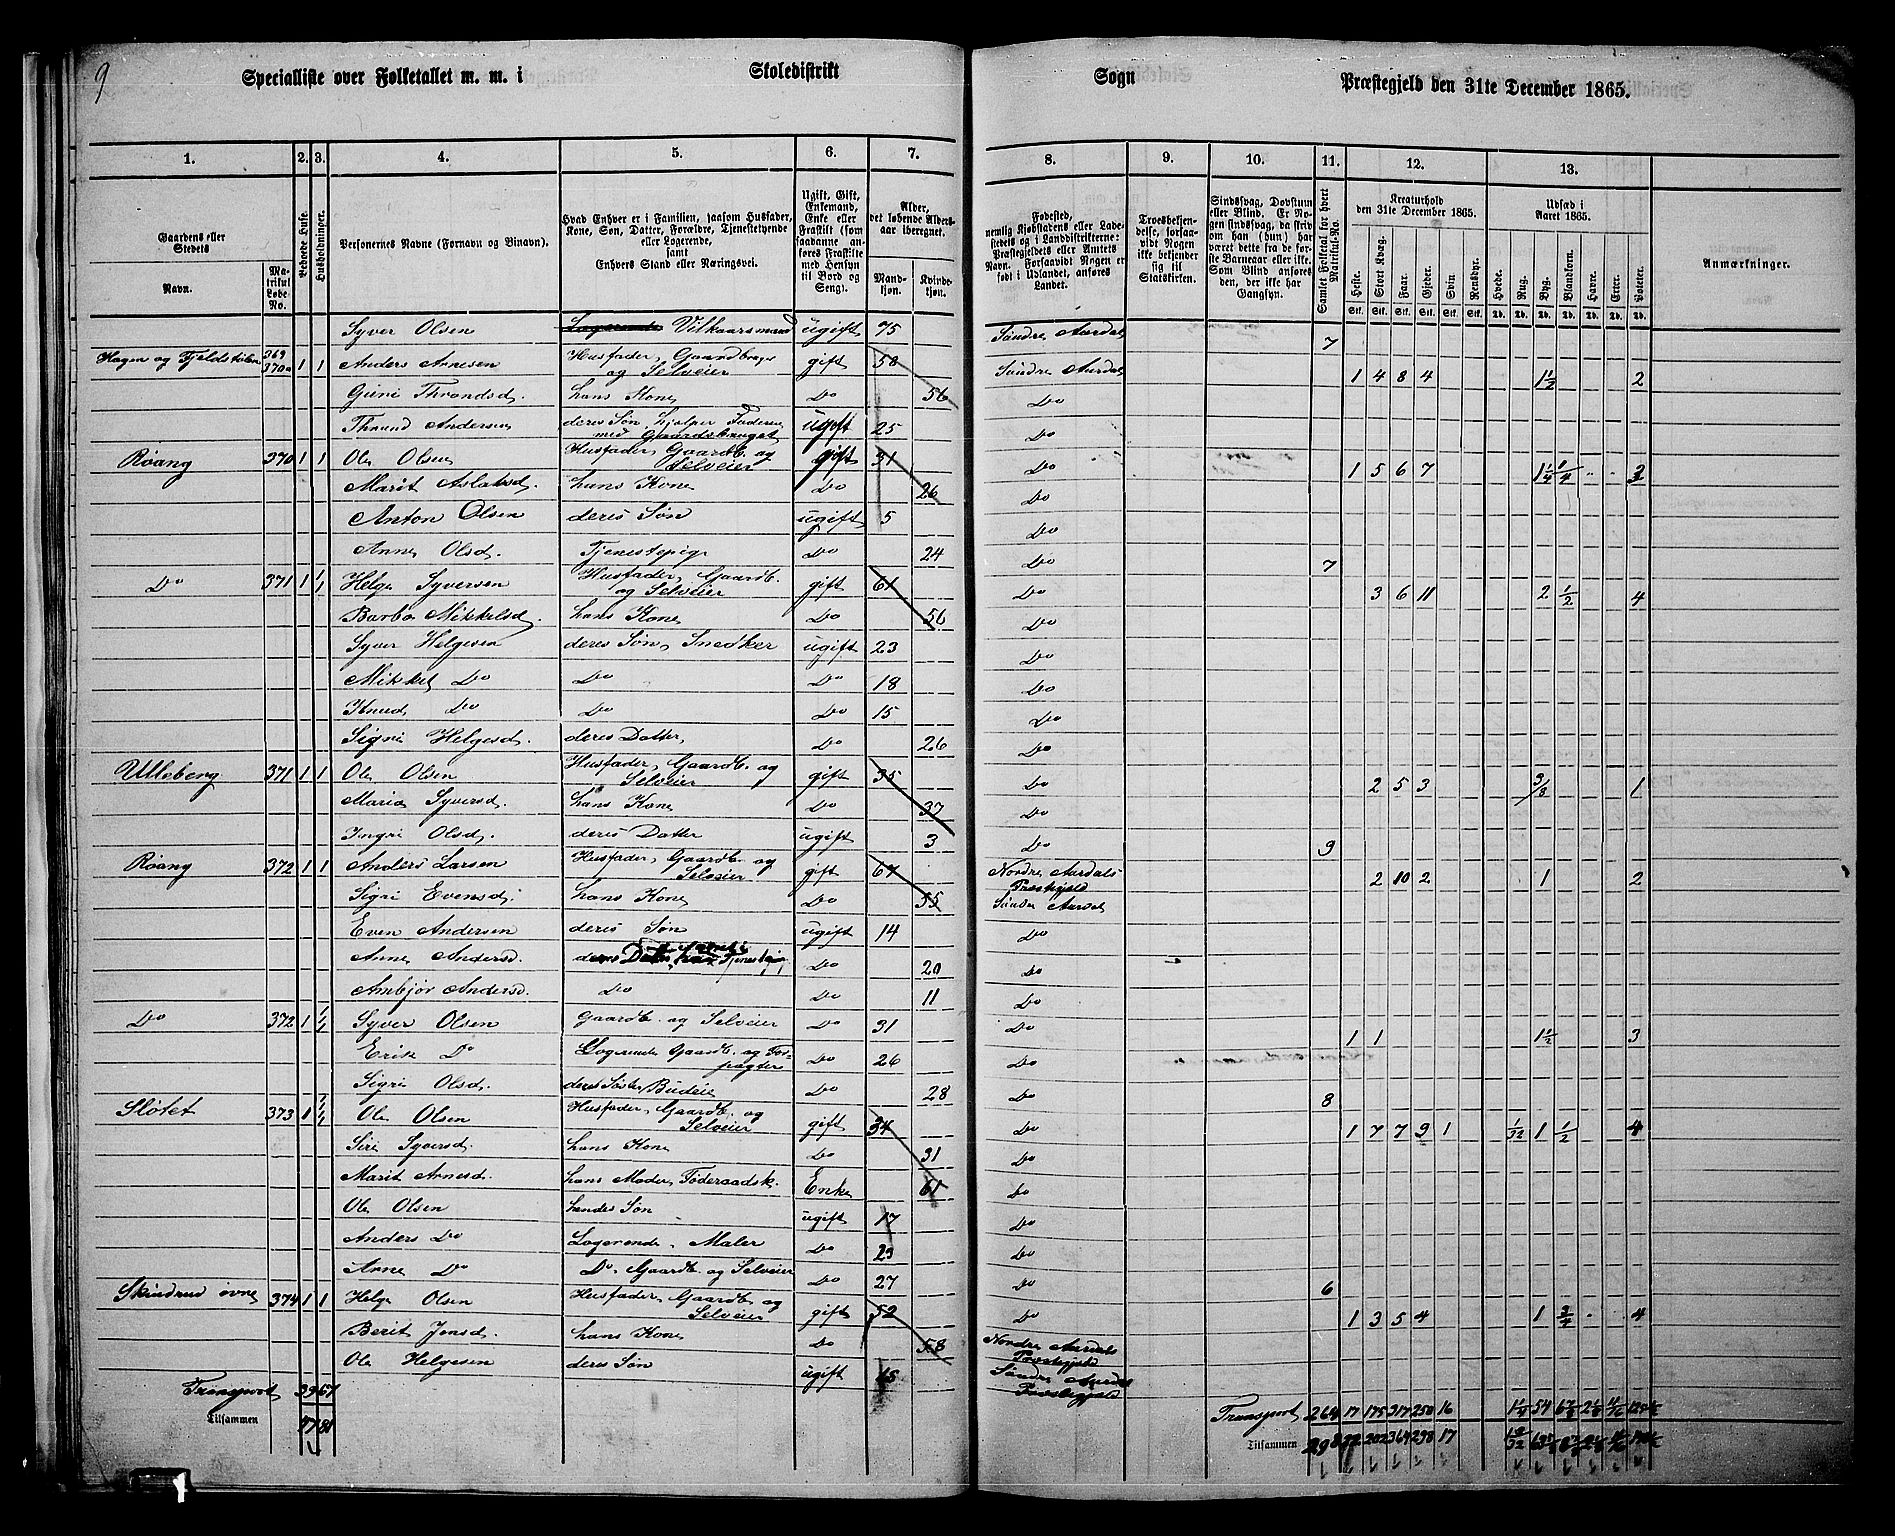 9
Specialliste over Folketallet m. m. i Stoledistrikt Sogn Præstegjeld den 31te December 1865.
1. 2. 3. 4. 5. 6. 7. 8. 9. 10. 11. 12. 13.
Gaardens eller Stedets Navn.
Matrikul Løbe-No.
Beboede Huse.
Husholdninger.
Personernes Navne (Fornavn og Binavn).
Hvad Enhver er i Familien, saasom Husfader, Kone, Søn, Datter, Forældre, Tjenestetyende eller Logerende, samt Enhvers Stand eller Næringsvei.
Ugift, Gift, Enkemand, Enke eller Fraskilt (som saadanne anføres Fraskilte med Hensyn til Bord og Seng).
Alder, det løbende Aldersaar iberegnet.
Mandkjøn. Kvindekjøn.
Fødested, nemlig Kjøbstadens eller Ladestedets og i Landdistrikterne: Præstegjeldets eller Amtets Navn. Forsaavidt Nogen er født i Udlandet, anføres Landet.
Troesbekjendelse, forsaavidt Nogen ikke bekjender sig til Statskirken.
Sindssvag, Døvstum eller Blind. Er Nogen sindssvag, da skriv om han (hun) har været dette fra de første Barneaar eller ikke. Som Blind anføres den, der ikke har Gangsyn.
Samlet Folketal for hvert Matrikul-No.
Kreaturhold den 31te December 1865.
Heste. Stort Kvæg. Faar. Gjeder. Svin. Rensdyr.
Udsæd i Aaret 1865.
Hvede. Rug. Byg. Blandkorn. Havre. Erter. Poteter.
Anmærkninger.
Syver Olsen Vilkaarsmand ugift 75 Søndre Aurdal 7
Hagen og Fjeldstølen 369 370a 1 1 Anders Arnesen Husfader, Gaardbruger og Selveier gift 58 Søndre Aurdal 1 4 8 4 1½ 2
Guri Throndsd. hans Kone Do 56 Do
Thrond Andersen deres Søn, hjelper Faderen med Gaardsbruget ugift 25 Do
Røang 370 1 1 Ole Olsen Husfader, Gaardb. og Selveier gift 31 Do 1 5 6 7 1¼ ¼ 3
Marit Aslaksd. hans Kone Do 26 Do
Anton Olsen deres Søn ugift 5 Do
Anne Olsd. Tjenestepige Do 24 Do 7
Do 371 1 1/1 Helge Syversen Husfader, Gaardb. og Selveier gift 61 Do 3 6 11 2 ½ 4
Barbo Mikkelsd. hans Kone Do 56 Do
Syver Helgesen deres Søn, Snedker ugift 23 Do
Mikkel Do Do Do 18 Do
Knud Do Do Do 15 Do
Sigri Helgesd. deres Datter Do 26 Do
Ulleberg 371 1 1 Ole Olsen Husfader, Gaardb. og Selveier gift 35 Do 2 5 3 3/8 1
Maria Syversd. hans Kone Do 37 Do
Ingri Olsd. deres Datter ugift 3 Do 9
Røang 372 1 1 Anders Larsen Husfader, Gaardb. og Selveier gift 67 Nordre Aurdals Præstegjeld 2 10 2 1 2
Sigri Evensd. hans Kone Do 55 Søndre Aurdal
Even Andersen deres Søn ugift 14 Do
Anne Andersd. deres Datter Tjenestepige Do 20 Do
Ambjør Andersd. Do Do 11 Do
Do 372 1 1/1 Syver Olsen Gaardb. og Selveier Do 31 Do 1 1 1½ 3
Erik Do Logerende Gaardb. og Forpagter Do 26 Do
Sigri Olsd. deres Søster Budeie Do 28 Do 8
Sløtet 373 1 Ole Olsen Husfader, Gaardb. og Selveier gift 34 Do 1 7 7 9 1 1/32 1 ½ 4
Siri Syversd. hans Kone Do 31 Do
Marit Arnesd. hans Moder, Føderaadsk. Enke 61 Do
Ole Olsen hendes Søn ugift 17 Do
Anders Do Logerende, Maler Do 23 Do
Arne Do Do, Gaardb. og Selveier Do 27 Do 6
Skindrud øvre 374 1 1 Helge Olsen Husfader, Gaardb. og Selveier gift 52 Do 1 3 5 4 1 3/4 4
Berit Jensd. hans Kone Do 58 Nordre Aurdals Præstegjeld
Ole Helgesen deres Søn ugift 15 Søndre Aurdals Præstegjeld
Transport 39 67 Transport 264 17 175 317 250 16 1¼ 54
Tilsammen 47 81 Tilsammen 298 22 202 364 298 17